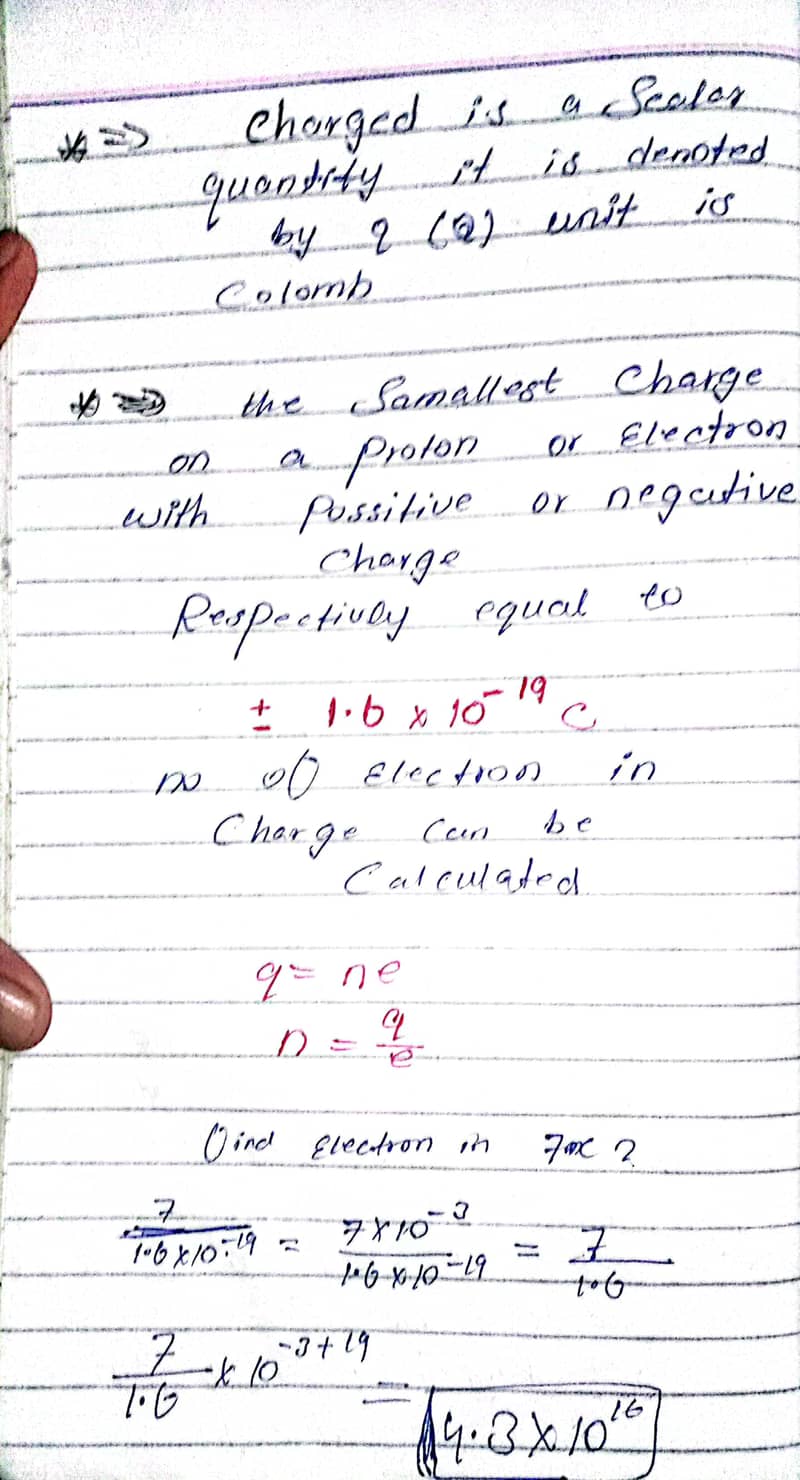 * ⇒ Charged is a Scalar
quantity it is denoted
by q (Q) unit is
Colomb
* ⇒ the Samallest Charge
on a proton or Electron
with Possitive or negative
Charge
Respectivly equal to
± 1.6 x 10⁻¹⁹ C
no of Electron in
Charge Can be
Calculated
q = ne
n = q/e
find Electron in 7mc ?
7/1.6 x 10⁻¹⁹ = 7 x 10⁻³/1.6 x 10⁻¹⁹ = 7/1.6
7/1.6 x 10⁻³⁺¹⁹ = 4.3 x 10¹⁶